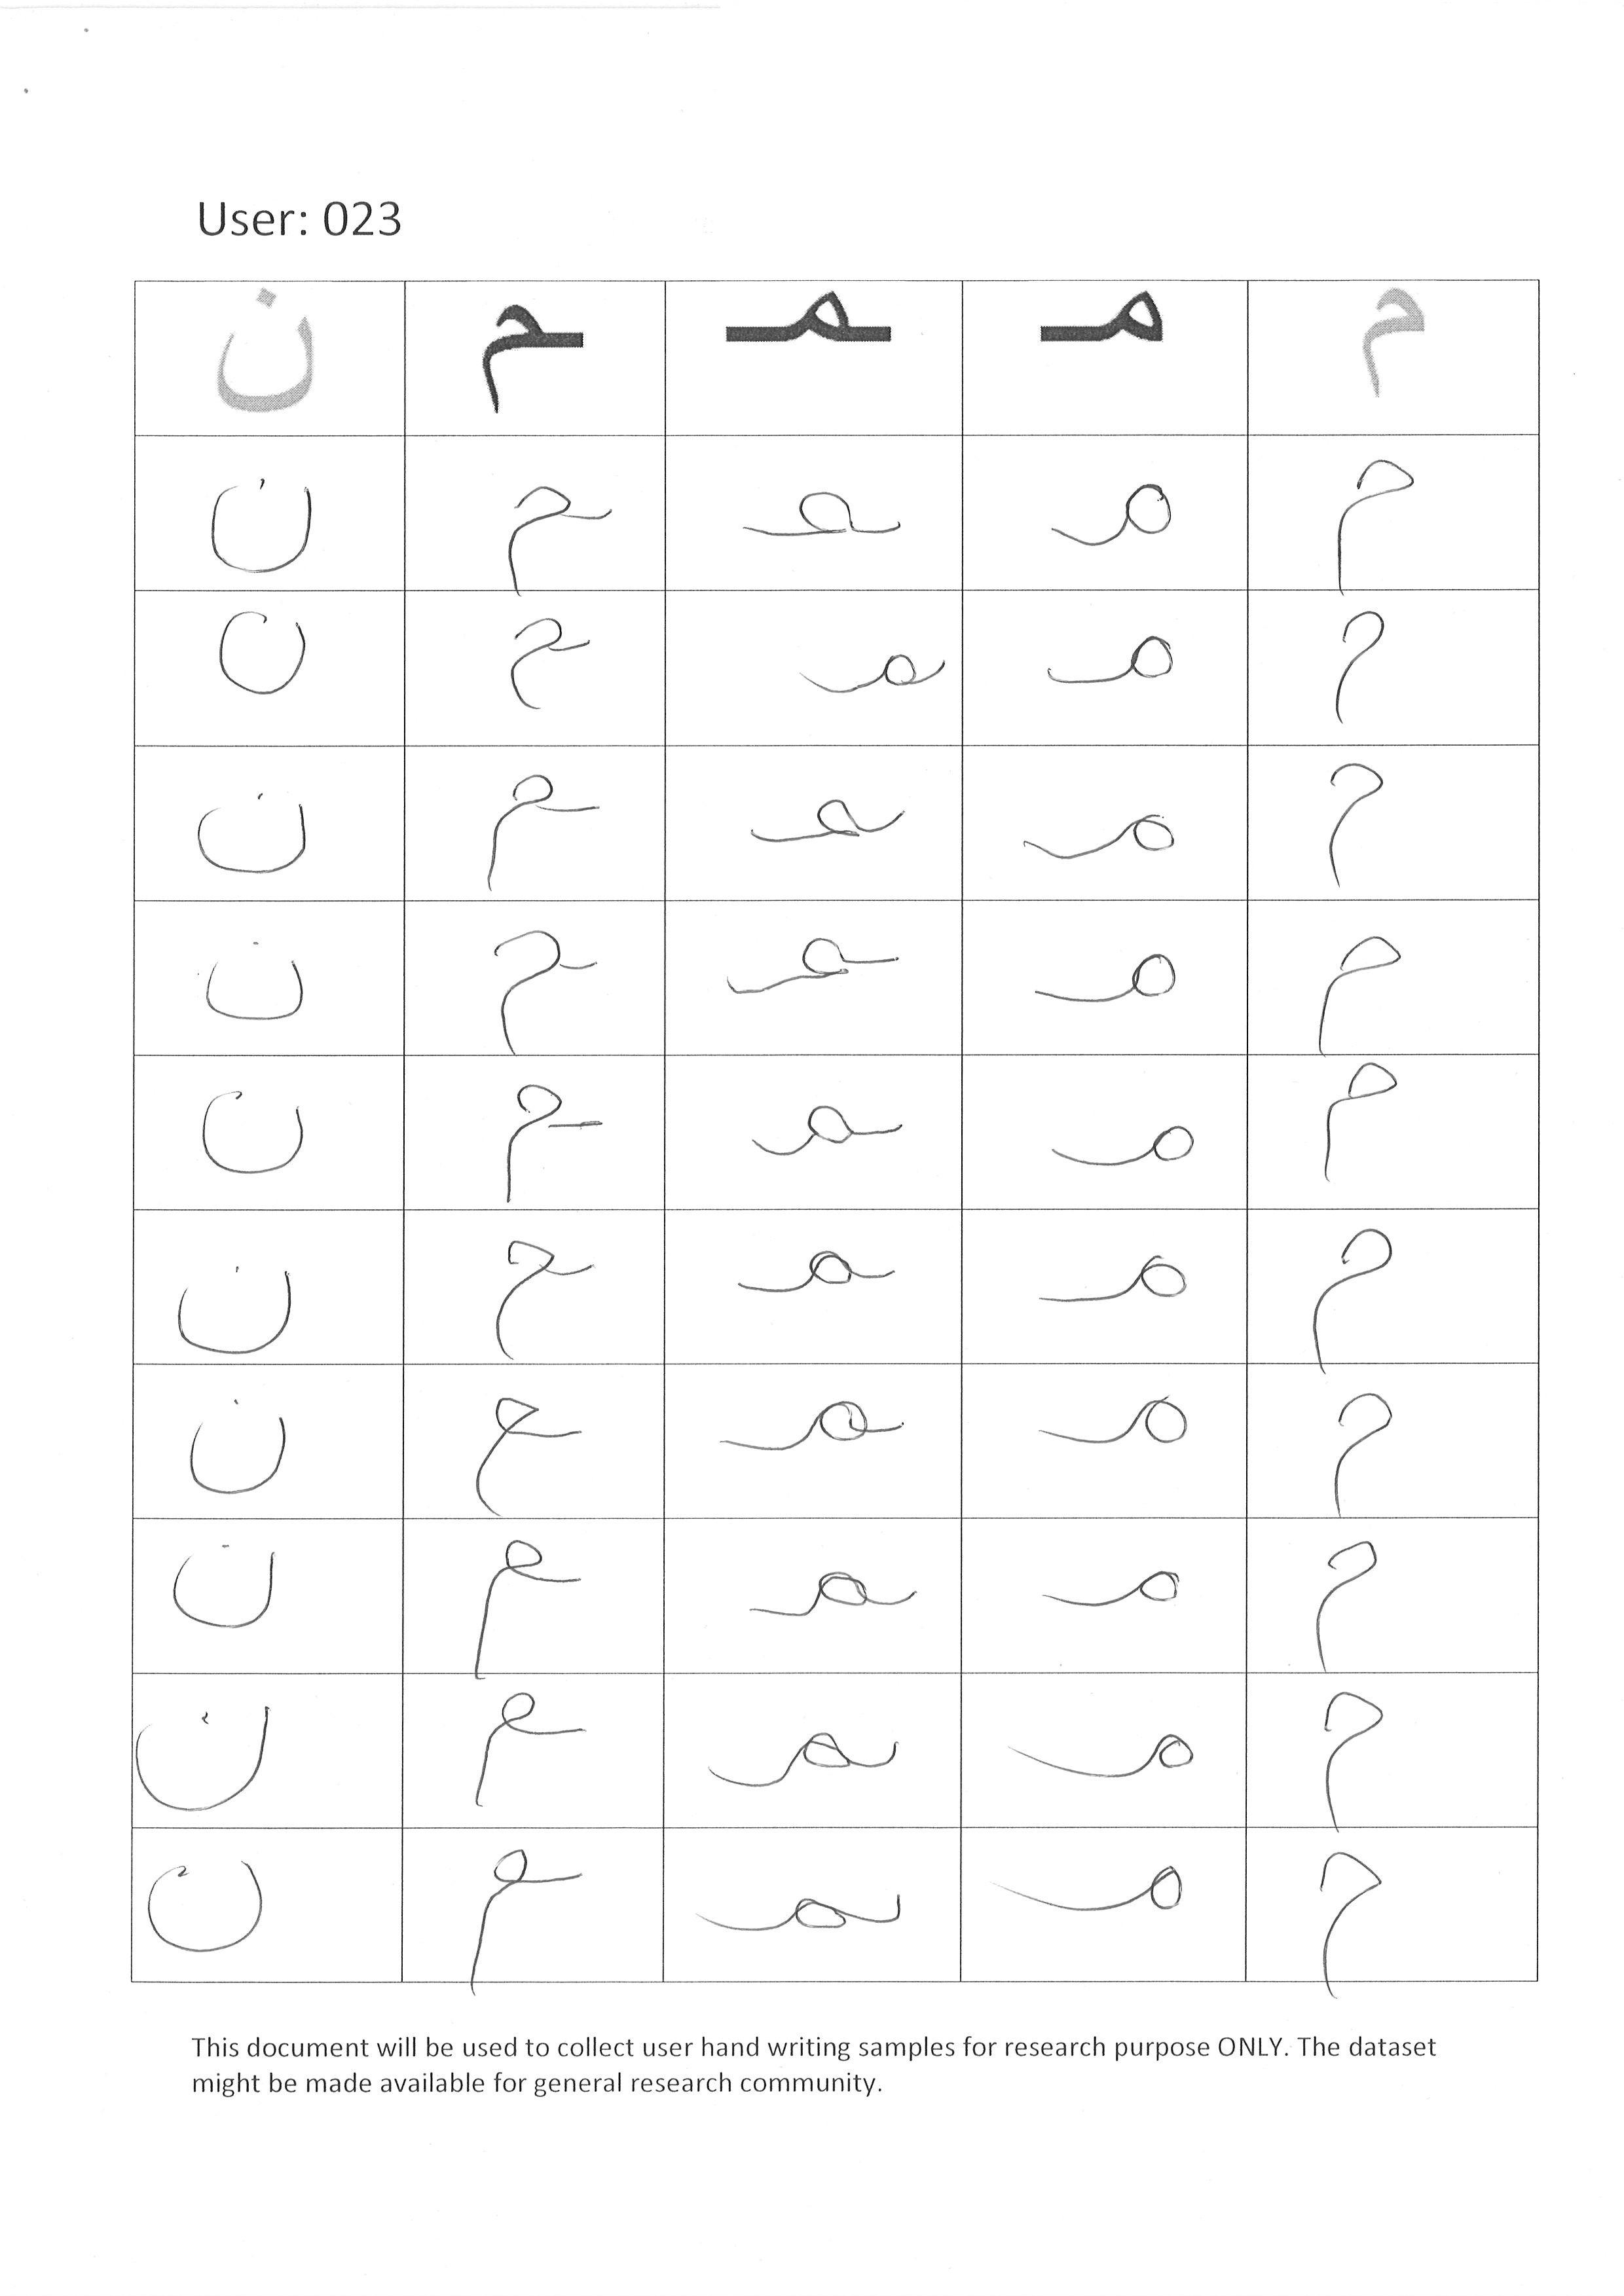 User: 023
م مـ ـمـ ـم ن
م مـ ـمـ ـم ن
م مـ ـمـ ـم ن
م مـ ـمـ ـم ن
م مـ ـمـ ـم ن
م مـ ـمـ ـم ن
م مـ ـمـ ـم ن
م مـ ـمـ ـم ن
م مـ ـمـ ـم ن
م مـ ـمـ ـم ن
م مـ ـمـ ـم ن
This document will be used to collect user hand writing samples for research purpose ONLY. The dataset
might be made available for general research community.